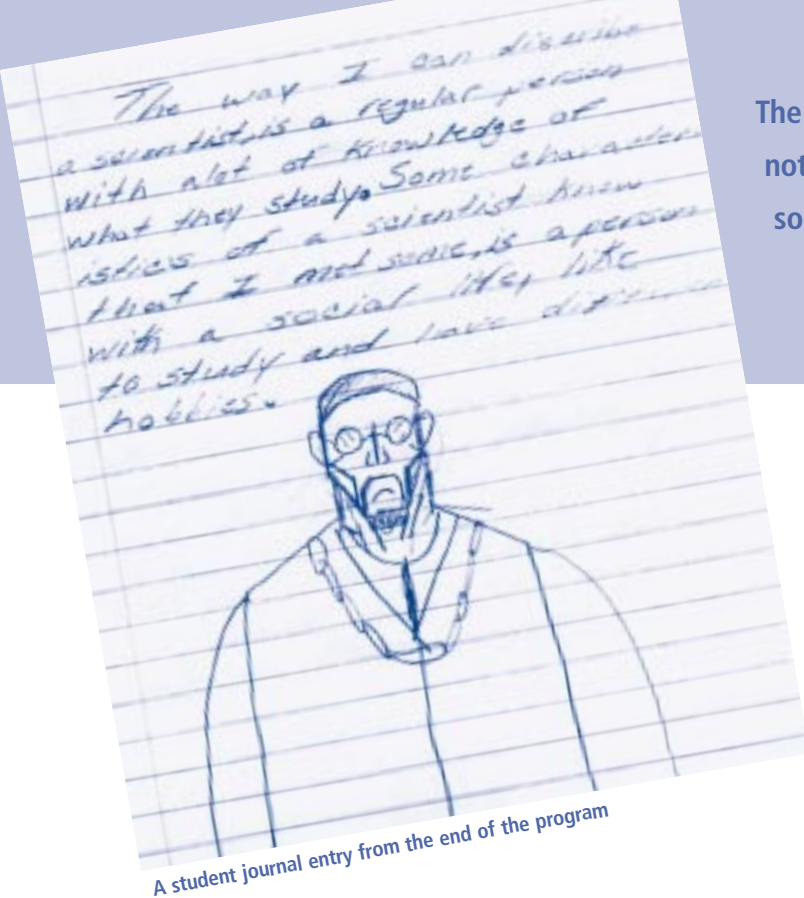 The way I can discribe
a scientist, is a regular person
with alot of Knowledge of
what they study. Some character
istics of a scientist Know
that I met some, is a person
with a social life, like
to study and have
hobbies.
The
not
so
A student journal entry from the end of the program